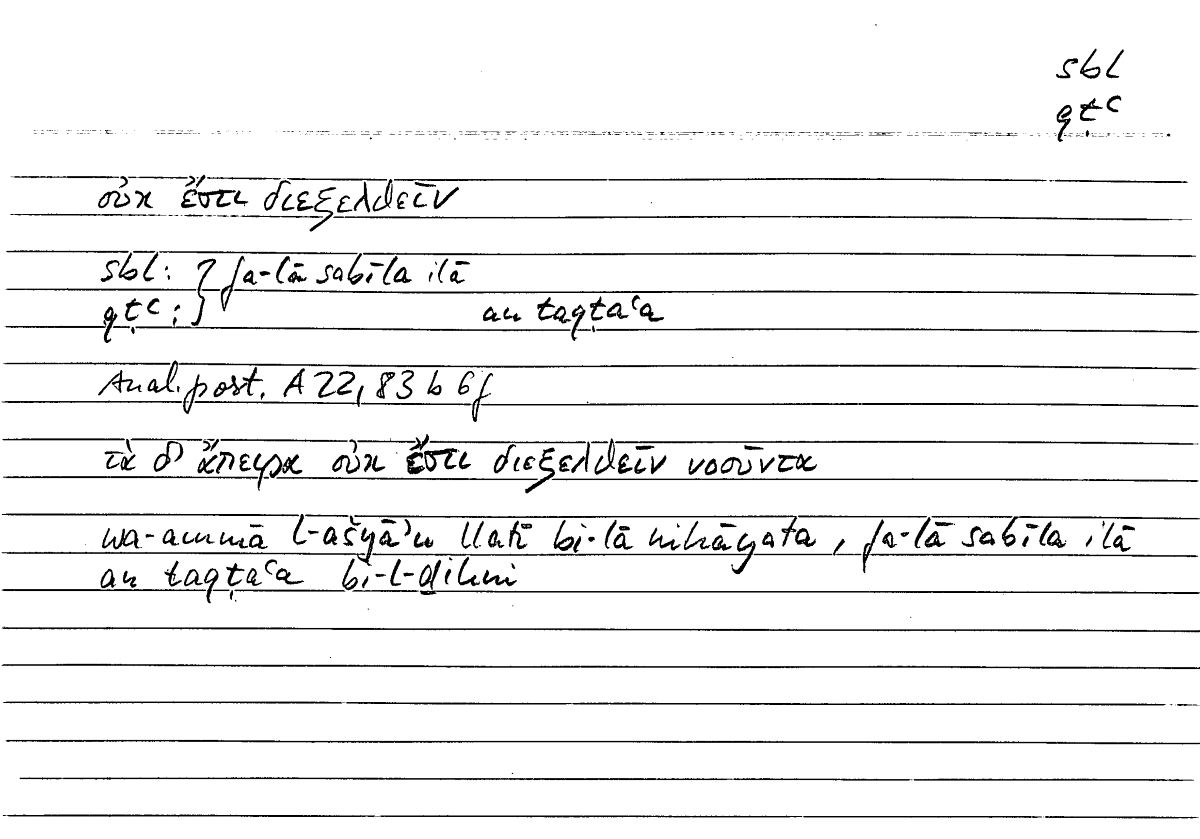 sbl
qṭʿ
οὐκ ἔστι διεξελθεῖν
sbl: } fa-lā sabīla ilā
qṭʿ: } an taqṭaʿa
Anal. post. A 22, 83 b 6f
τὰ δ' ἄπειρα οὐκ ἔστι διεξελθεῖν νοοῦντα
wa-ammā l-ašyāʾu llatī bi-lā nihāyata, fa-lā sabīla ilā
an taqṭaʿa bi-l-ḏihni